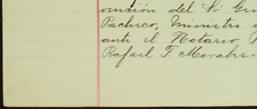 vención del Sr Gr
Pacheco, Ministro
ante el Notario
Rafael T. Morales.